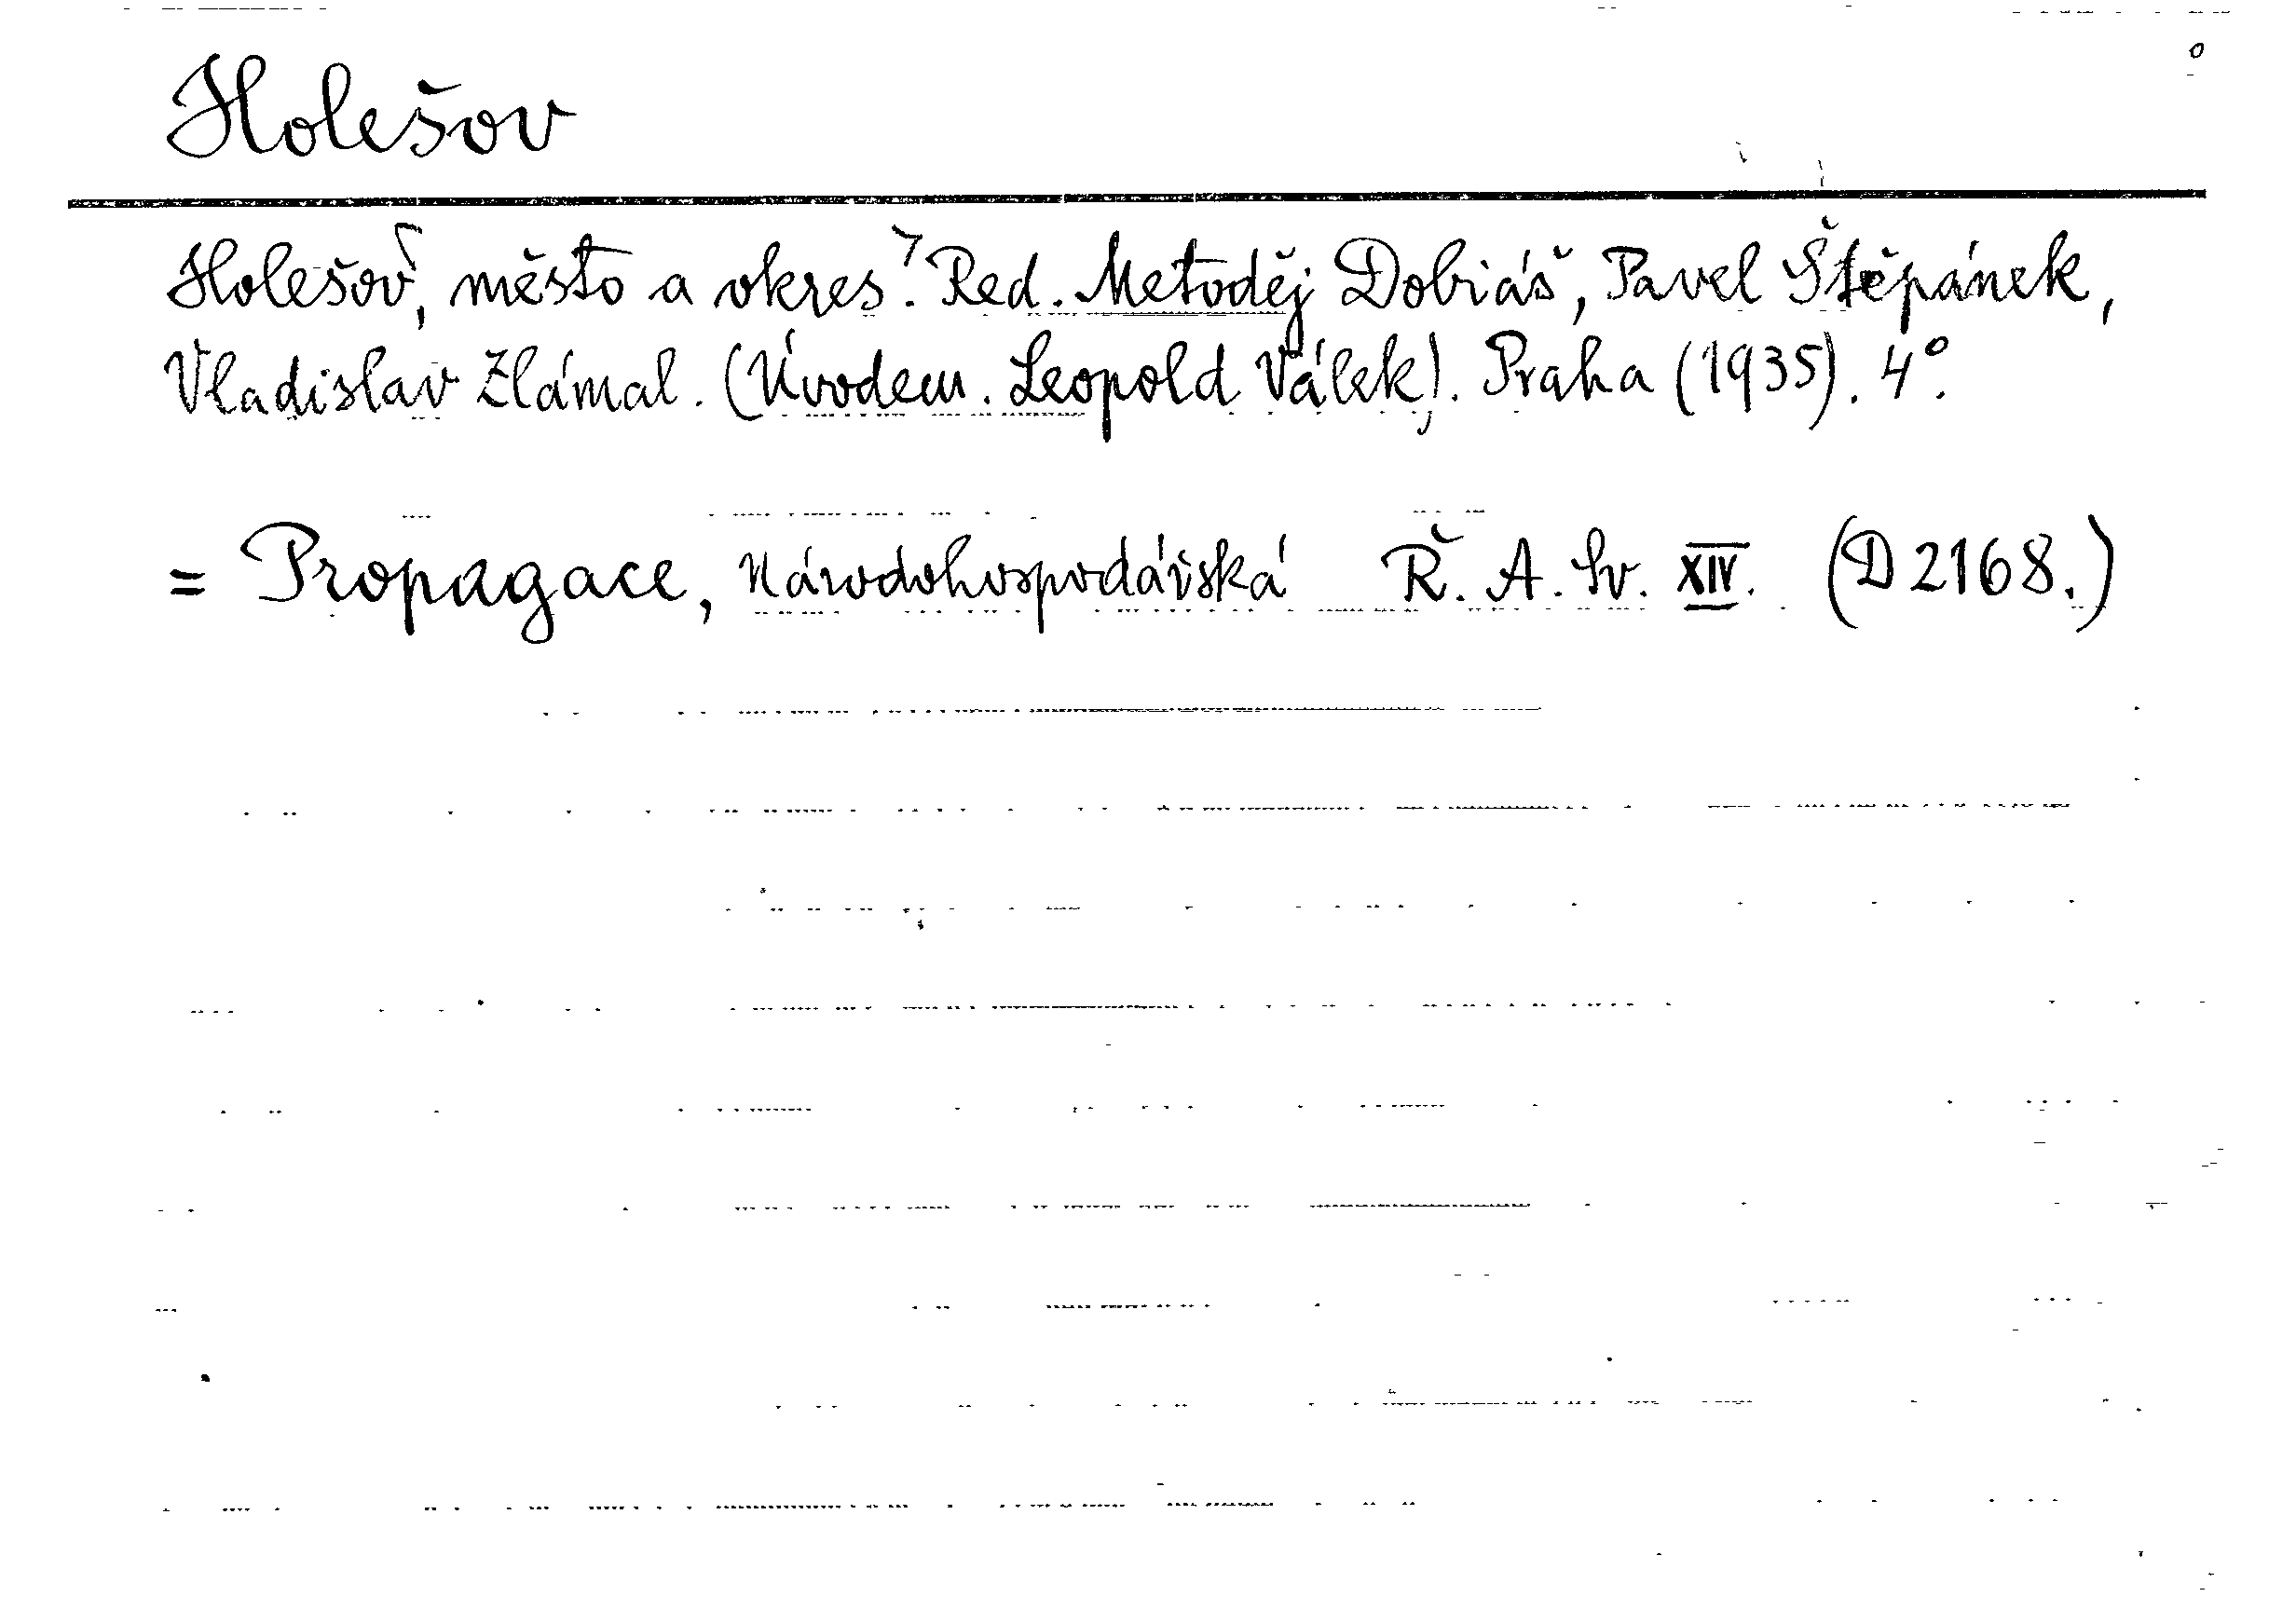 Holešov
Holešov, město a okres. Red. Metoděj Dobiáš, Pavel Štěpánek,
Vladislav Zlámal. (Úvodem. Leopold Válek). Praha (1935). 4°.
= Propagace, Národohospodářská Ř. A. Sv. XIV. (D 2168.)